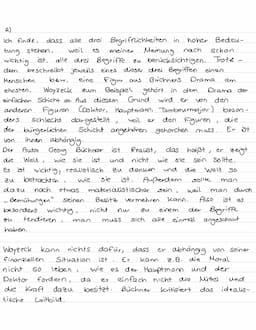 2)
Ich finde, dass alle drei Begrifflichkeiten in hoher Bedeu-
tung stehen, weil es meiner Meinung nach schon
wichtig ist, alle drei Begriffe zu berücksichtigen. Trotz-
dem beschreibt jeweils eines dieser drei Begriffen einen
Menschen bzw. eine Figur aus Büchners Drama am
ehesten. Woyzeck zum Beispiel gehört in dem Drama der
einfachen Schicht an. Aus diesem Grund wird er von den
anderen Figuren (Doktor, Hauptmann, Tambourmajor) beson-
ders schlecht dargestellt, weil er den Figuren, die
der bürgerlichen Schicht angehören gehorchen muss. Er ist
von ihnen abhängig.
Der Autor Georg Büchner ist Realist, das heißt, er zeigt
die Welt, wie sie ist und nicht wie sie sein sollte.
Es ist wichtig, realistisch zu denken und die Welt so
zu betrachten, wie sie ist. Außerdem sollte man
dazu noch etwas materialistischer sein, weil man durch
"Bemühungen" seinen Besitz vermehren kann. Also ist es
besonders wichtig, nicht nur zu einem der Begriffe
zu tendieren, man muss sich alle einmal angeschaut
haben.
Woyzeck kann nichts dafür, dass er abhängig von seiner
finanziellen Situation ist. Er kann z.B. die Moral
nicht so leben, wie es der Hauptmann und der
Doktor fordern, da er einfach nicht die Mittel und
die Kraft dazu besitzt. Büchner kritisiert das idealis-
tische Leitbild.